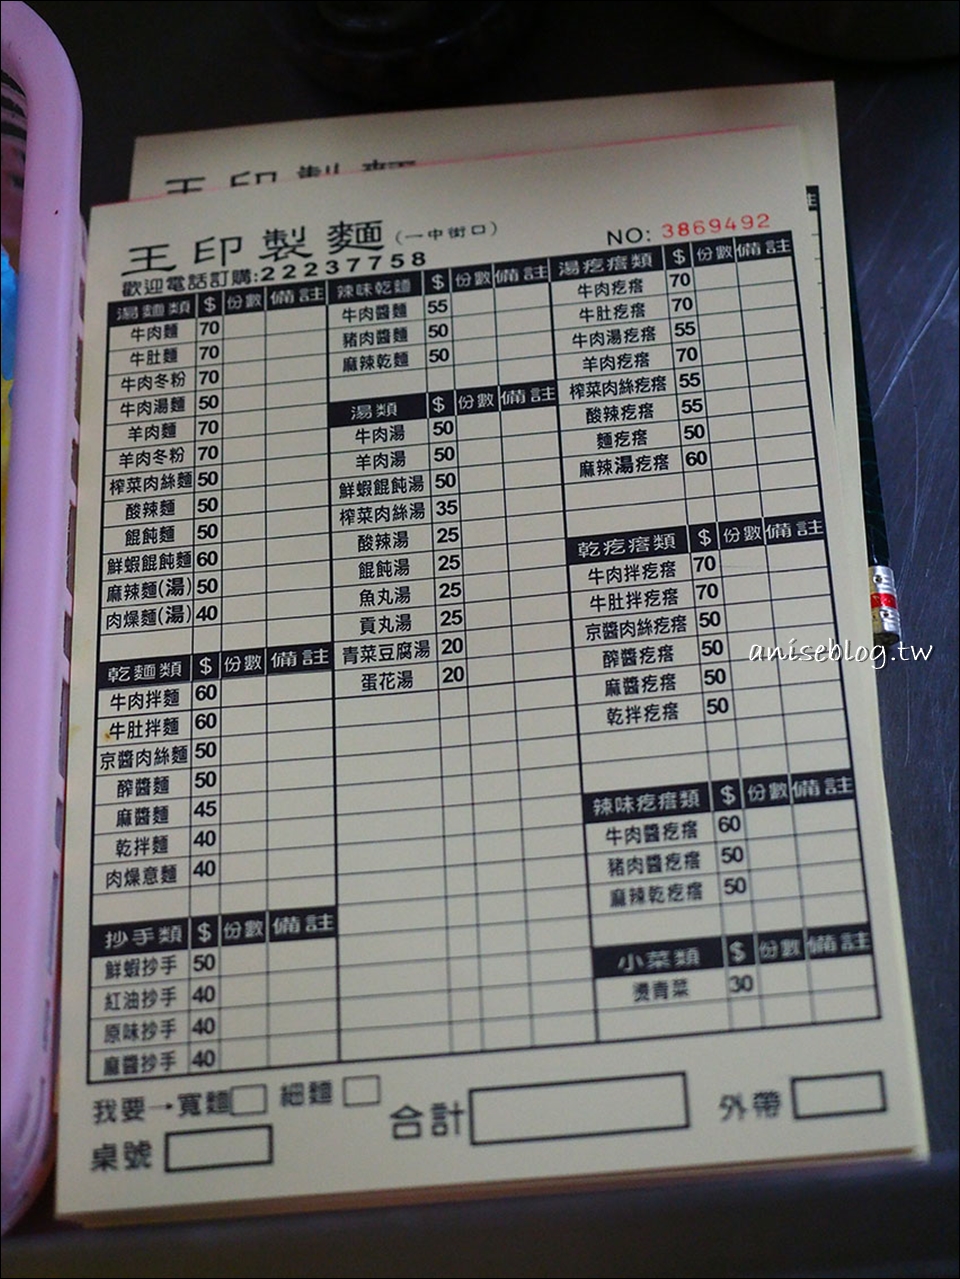 王印製麵
王印製麵(一中街口)
NO: 3869492
歡迎電話訂購:22237758
湯麵類 $ 份數 備註
牛肉麵 70
牛肚麵 70
牛肉冬粉 70
牛肉湯麵 50
羊肉麵 70
羊肉冬粉 70
榨菜肉絲麵 50
酸辣麵 50
餛飩麵 50
鮮蝦餛飩麵 60
麻辣麵(湯) 50
肉燥麵(湯) 40
乾麵類 $ 份數 備註
牛肉拌麵 60
牛肚拌麵 60
京醬肉絲麵 50
醡醬麵 50
麻醬麵 45
乾拌麵 40
肉燥意麵 40
抄手類 $ 份數 備註
鮮蝦抄手 50
紅油抄手 40
原味抄手 40
麻醬抄手 40
辣味乾麵 $ 份數 備註
牛肉醬麵 55
豬肉醬麵 50
麻辣乾麵 50
湯類 $ 份數 備註
牛肉湯 50
羊肉湯 50
鮮蝦餛飩湯 50
榨菜肉絲湯 35
酸辣湯 25
餛飩湯 25
魚丸湯 25
貢丸湯 25
青菜豆腐湯 20
蛋花湯 20
湯疙瘩類 $ 份數 備註
牛肉疙瘩 70
牛肚疙瘩 70
牛肉湯疙瘩 55
羊肉疙瘩 70
榨菜肉絲疙瘩 55
酸辣疙瘩 55
麵疙瘩 50
麻辣湯疙瘩 60
乾疙瘩類 $ 份數 備註
牛肉拌疙瘩 70
牛肚拌疙瘩 70
京醬肉絲疙瘩 50
醡醬疙瘩 50
麻醬疙瘩 50
乾拌疙瘩 50
辣味疙瘩類 $ 份數 備註
牛肉醬疙瘩 60
豬肉醬疙瘩 50
麻辣乾疙瘩 50
小菜類 $ 份數 備註
燙青菜 30
我要→寬麵 細麵
合計
外帶
桌號
aniseblog.tw